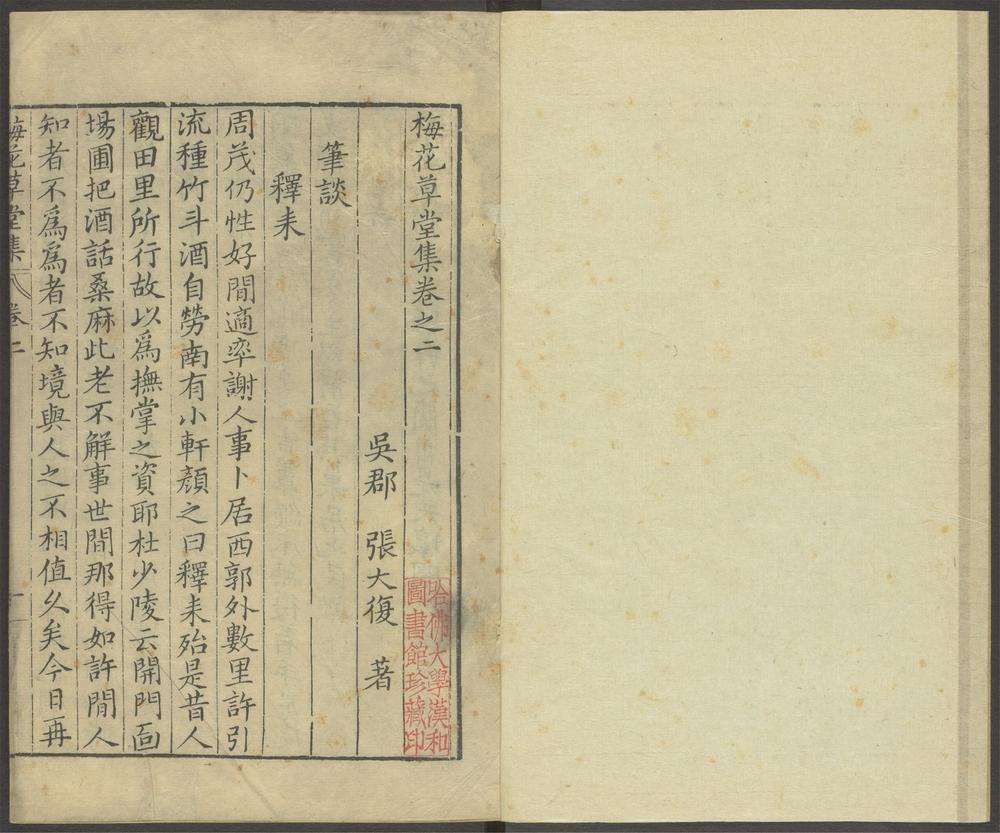 梅花草堂集卷之二
吳郡 張大復 著
哈佛大學漢和
圖書館珍藏印
筆談
釋耒
周茂仍性好閒適率謝人事卜居西郭外數里許引
流種竹斗酒自勞南有小軒顏之曰釋耒殆是昔人
觀田里所行故以爲撫掌之資耶杜少陵云開門面
場圃把酒話桑麻此老不解事世間那得如許閒人
知者不爲爲者不知境與人之不相值久矣今日再
梅花草堂集 卷二 一